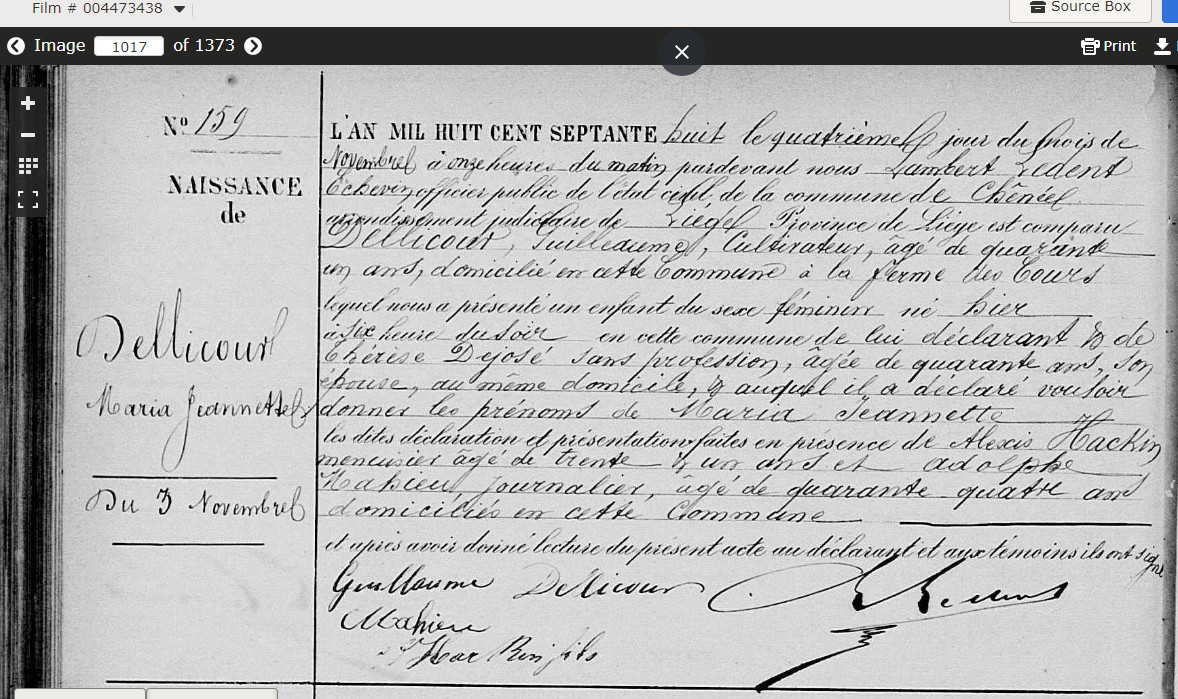 Film # 004473438
Source Box
Image 1017 of 1373
Print
Nº 159
NAISSANCE
de
Dellicour
Maria Jeannette
Du 3 Novembre
L'AN MIL HUIT CENT SEPTANTE huit le quatrième jour du mois de
Novembre à onze heures du matin pardevant nous Lambert Ledent
Echevin officier public de l'état civil de la commune de Chênée
arrondissement judiciaire de Liège Province de Liège est comparu
Dellicour, Guilleaume, Cultivateur, âgé de quarante
un ans, domicilié en cette Commune à la ferme des Cours
lequel nous a présenté un enfant du sexe féminin né hier
à six heure du soir en cette commune de lui déclarant & de
Thérèse Dejosé sans profession, âgée de quarante ans, son
épouse, au même domicile, & auquel il a déclaré vouloir
donner les prénoms de Maria Jeannette
les dites déclaration et présentation faites en présence de Alexis Hackin
menuisier âgé de trente & un ans et adolphe
Mahieu, journalier, âgé de quarante quatre ans
domiciliés en cette Commune
et après avoir donné lecture du présent acte au déclarant et aux témoins ils ont signé
Guillaume Dellicour
AMahieu
fils